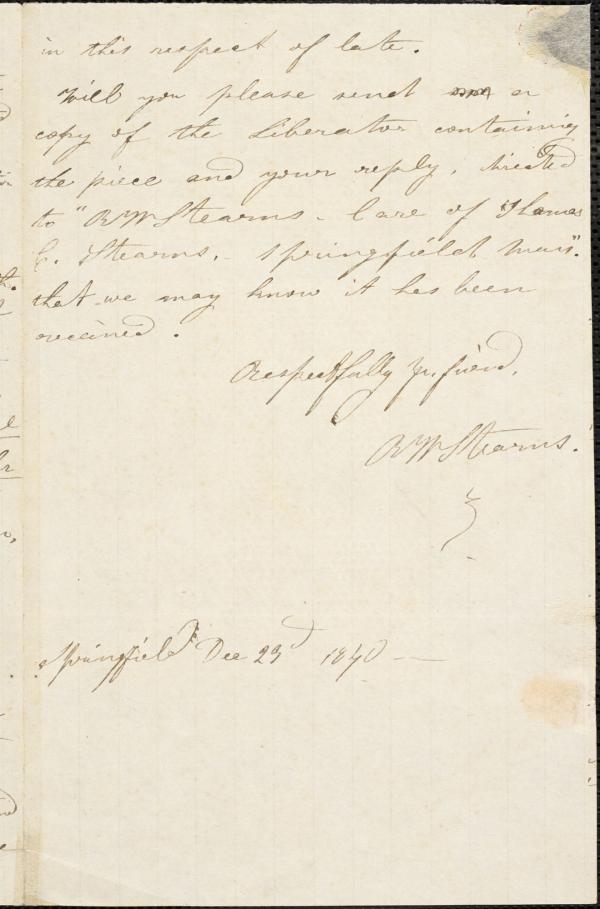 in this respect of late.
Will you please send a
copy of the Liberator containing
the piece and your reply, directed
to "R W Stearns - Care of
C. Stearns, - Springfield Mass".
that we may know it has been
received.
Respectfully yr. friend,
R W Stearns.
Springfield Dec 23d 1840 -